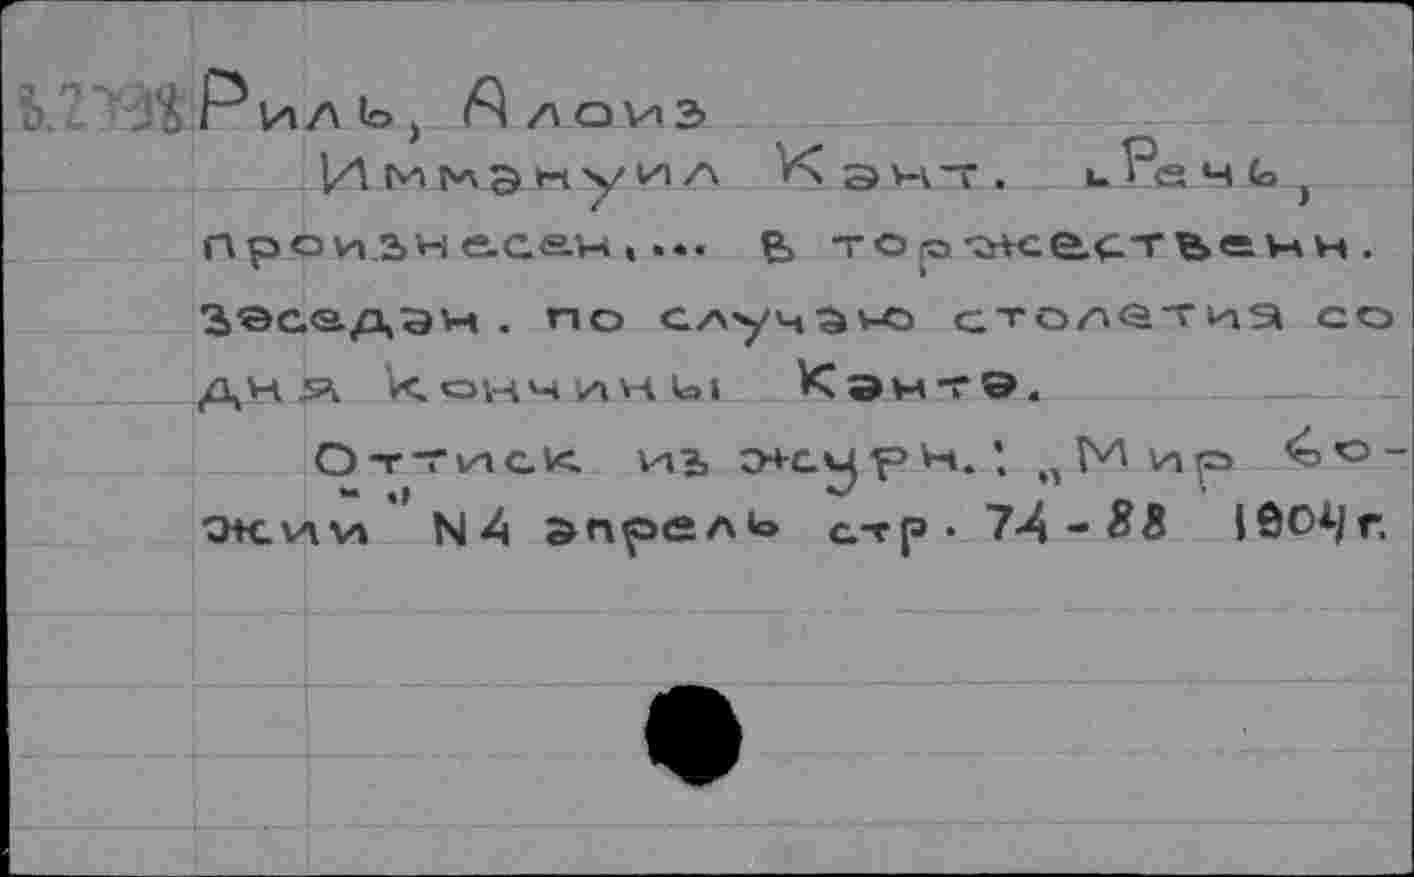 Риль, Алоиз
Иммануил Кант. „Речь,
произнесен,... в торжественн.
заседан. по случаю столетия со
дня кончины Канта.
Оттиск из журн.: „Мир Бо-
жий" N4 апрель стр. 74-88 1904г.